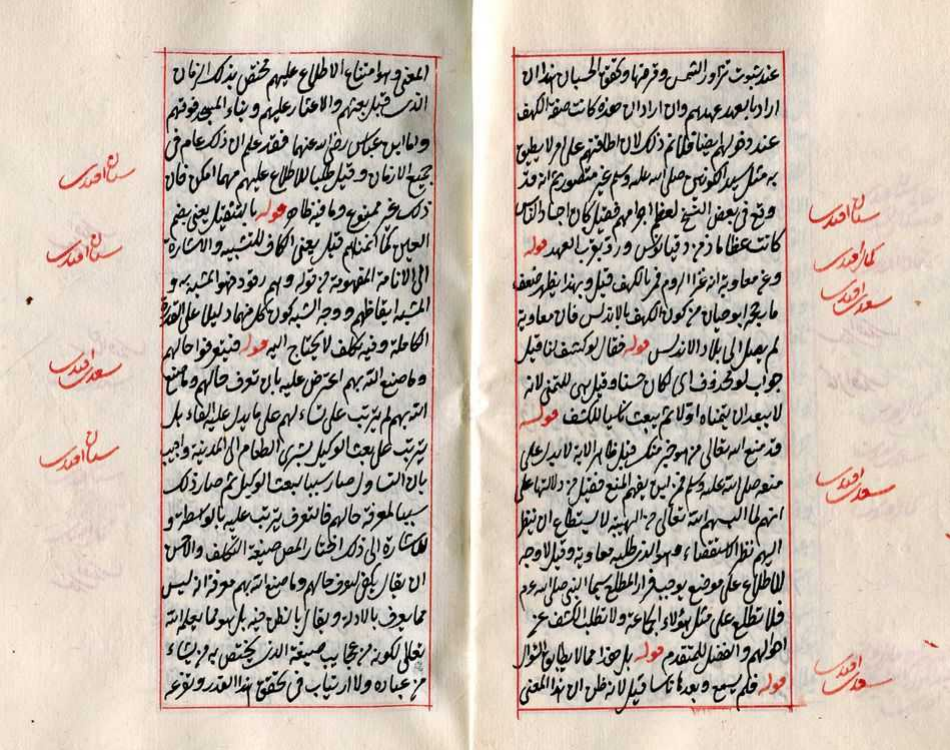 عند ثبوت تزاور الشمس وقرضها وتحقق الحسبان اندا ان
اراد بابعد عهدهم وان اراد ان هذه كانت صفة الكهف
عند دخولهم ايضا فلا تم ذلك لان اطاقتهم على امر لا يطيق
به مثل سيد الكونين صلى الله عليه وسلم غير متصور ثم انه قد
وقع في بعض النسخ لعظم اجرامهم فقيل كان اجساد الناس
كانت عظاما دقيانوس ورد بقرب العهد قوله
وعن معاوية انه غزا الروم فمر بالكهف قيل وبهذا يظهر ضعف
ما رجحه ابو حيان من كون الكهف بالاندلس فان معاوية
لم يصل الى بلاد الاندلس قوله فقال لو كشف لنا قيل
جواب لو محذوف اى لكان حسنا وقيل هى للتمنى لانه
لا يبعد ان يتمناه اولا ثم يبعث ناسا للكشف قوله
قد منع الله تعالى من هو خير منك قيل ظاهر الآية لا يدل على
منعه صلى الله عليه وسلم فمن اين يفهم المنع فقيل من دلالتها على
انهم لما البسهم الله تعالى من الهيبة لا يستطاع ان ينظر
اليهم نظر الاستقصاء وهو الذى طلبه معاوية وقيل لا وجه
للاطلاع على موضع يوجب فرار المطلع سيما النبى صلى الله عليه وسلم
فلا تطلع على مثل هؤلاء الجماعة ولا تطلب الكشف عن
احوالهم والفضل للمتقدم قوله بل هذا مما لا يطابق السؤال
قوله فلم يسمع وبعث ناسا قيل لانه ظن ان هذا المعنى
سنان افندى
كمال افندى
سعدى افندى
سعدى افندى
سعدى افندى
المعنى وهو امتناع الاطلاع عليهم مختص بذلك الزمان
الذى قبل بعثهم والاعثار عليهم وبناء المسجد فوقهم
واما ابن عباس رضى الله عنهما فقد علم ان ذلك عام فى
جميع الازمان وقيل طلبا للاطلاع عليهم مهما امكن فان
ذلك غير ممنوع وما فيه ظاهر قوله بالتثقيل يعنى بضم
العين كما انمناهم قيل يعنى الكاف للتشبيه والاشارة
الى الانامة المفهومة من قوله وهم رقود فهو المشبه به و
المشبه ايقاظهم ووجه الشبه كون كل منها دليلا على القدرة
الكاملة وفيه تكلف لا يحتاج اليه قوله فيتعرفوا حالهم
وما صنع الله بهم اعترض عليه بان تعرف حالهم وما صنع
الله بهم لم يترتب على تساءلهم على ما يدل عليه الفاء بل
يترتب على بعث الوكيل يشترى الطعام الى المدينة واجيب
بان التساول صار سببا لبعث الوكيل ثم صار ذلك
سببا لمعرفة حالهم فالتعرف يترتب عليه بالواسطة و
للاشارة الى ذلك اختار المص صيغة التكلف والاحسن
ان يقال يكفى لتعرف حالهم وما صنع الله بهم معرفة انه ليس
مما يعرف بالادلة ويقال بالظن فيه بل هو مما يعلم الله
تعالى لكونه من عجايب صنيعه الذى يختص به من يشاء
من عباده ولا ارتياب فى تحقق هذا القدر وتوقعه
سنان افندى
سنان افندى
سعدى افندى
سنان افندى